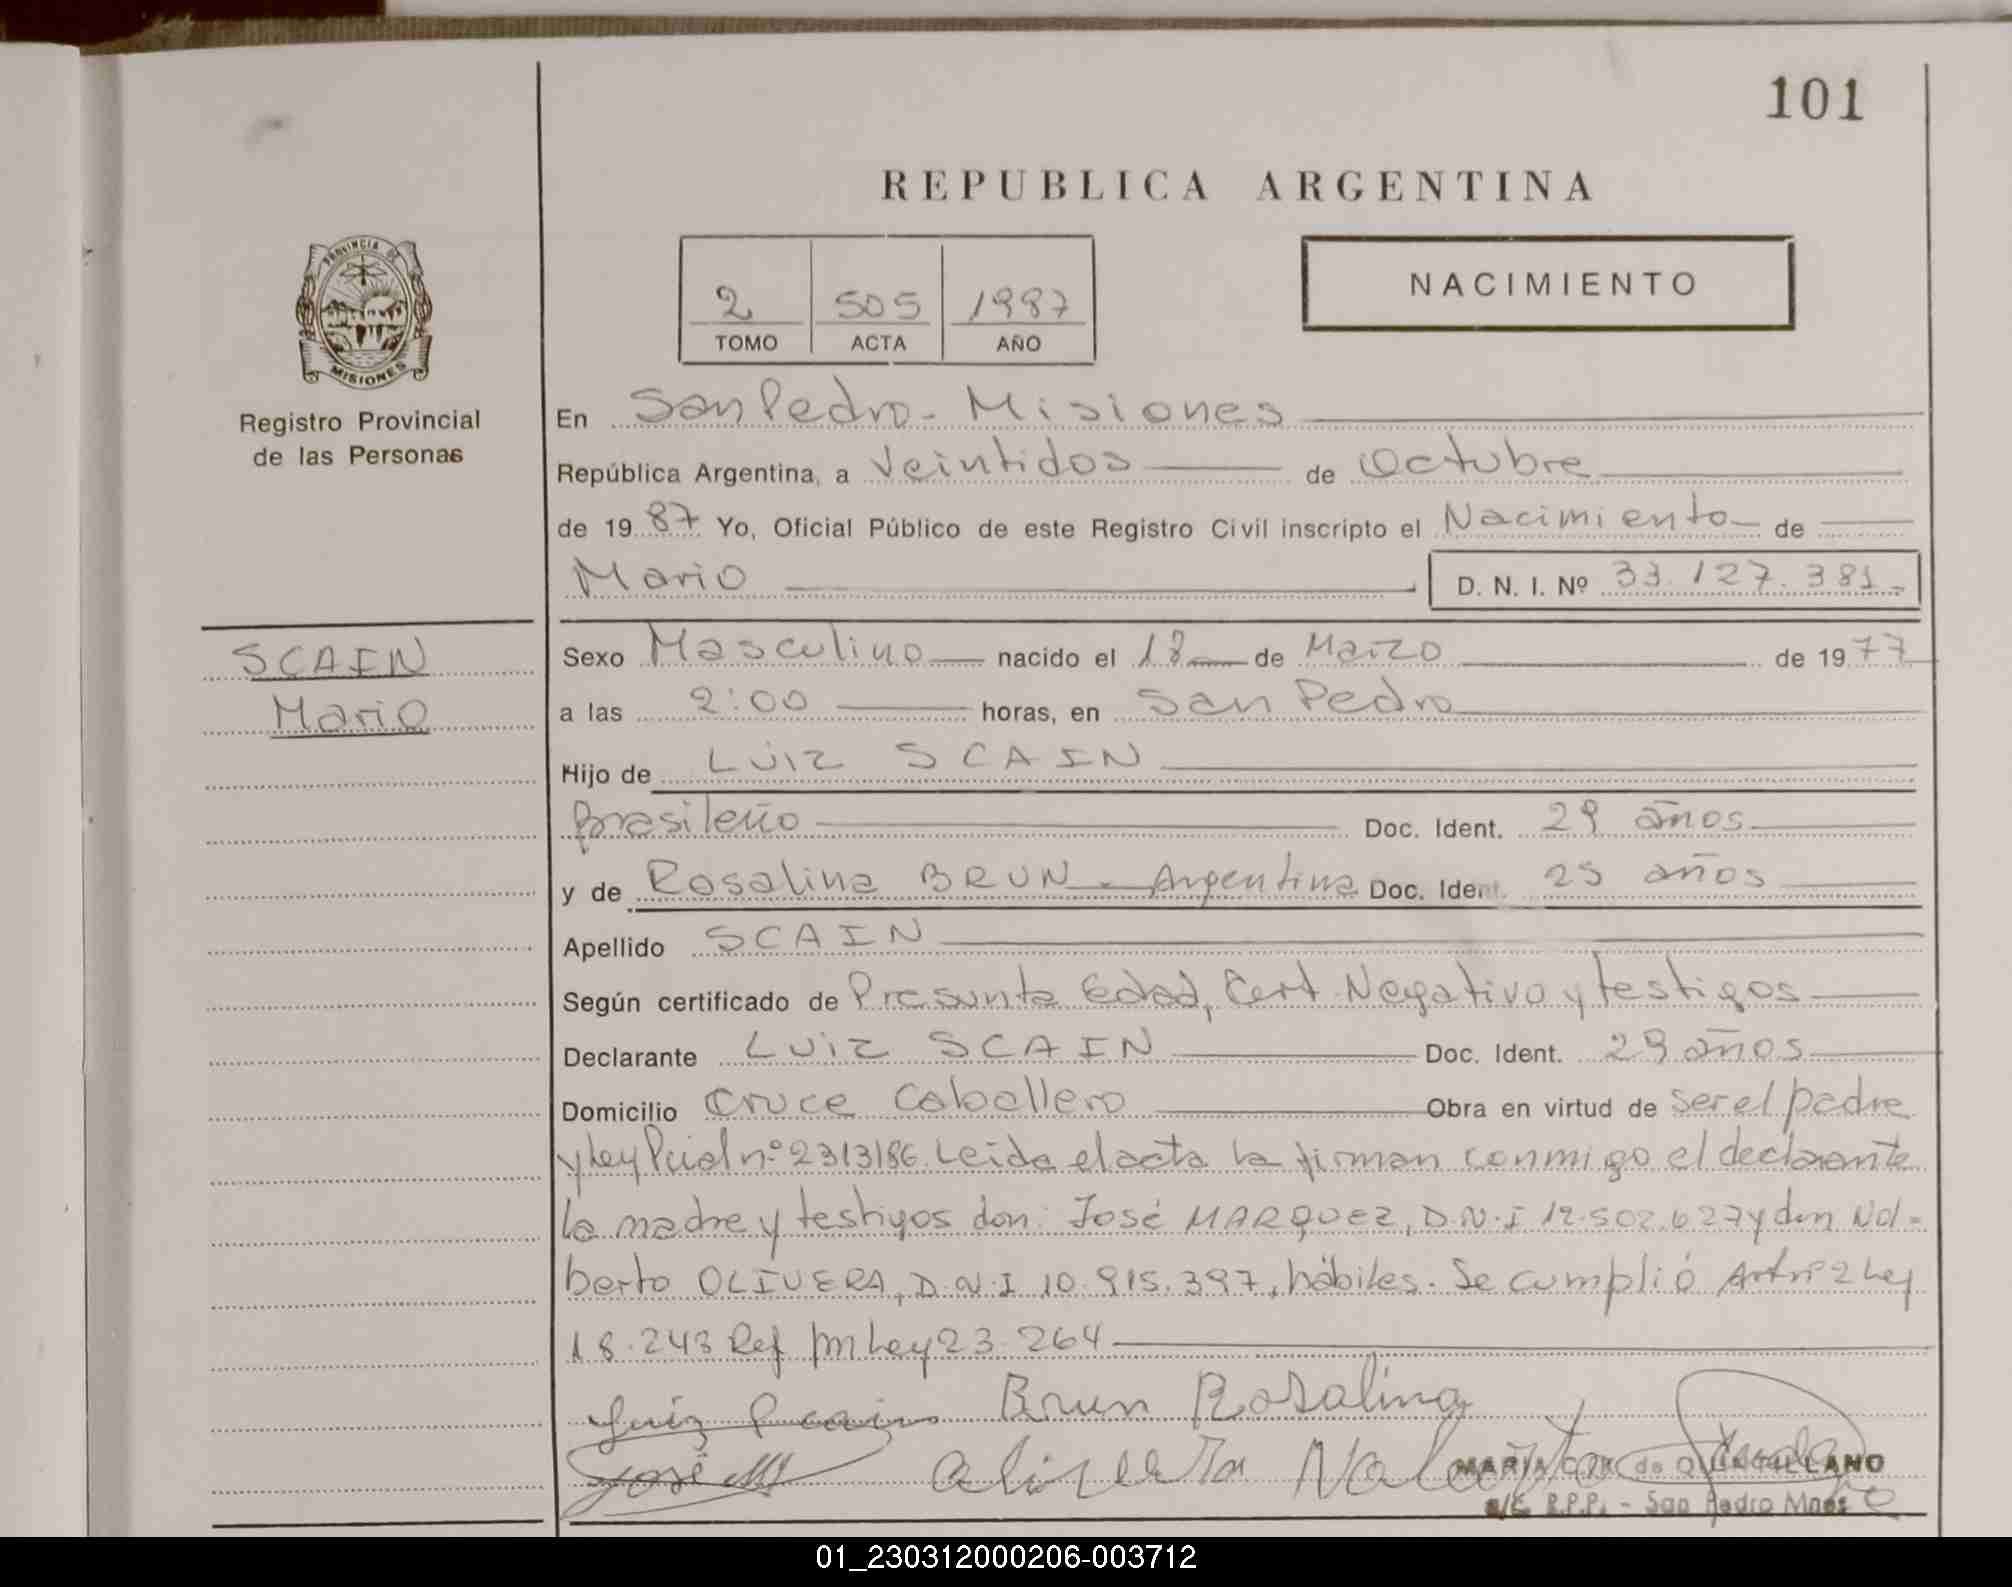 101
REPUBLICA ARGENTINA
PROVINCIA DE
MISIONES
Registro Provincial
de las Personas
2 505 1987
TOMO ACTA AÑO
NACIMIENTO
En San Pedro - Misiones
República Argentina, a Veintidos de Octubre
de 19 87 Yo, Oficial Público de este Registro Civil inscripto el Nacimiento de
Mario D. N. I. Nº 33.127.381.-
SCAIN
Mario
Sexo Masculino nacido el 18 de Marzo de 19 77
a las 2:00 horas, en San Pedro
Hijo de Luiz SCAIN
Brasileño Doc. Ident. 29 años
y de Rosalina BRUN - Argentina Doc. Ident. 25 años
Apellido SCAIN
Según certificado de Presunta Edad, Cert. Negativo y testigos
Declarante Luiz SCAIN Doc. Ident. 29 años
Domicilio Cruce Caballero Obra en virtud de ser el padre
y Ley Pcial nº 2313/86. Leida el acta la firman conmigo el declarante
la madre y testigos don: José MARQUEZ, D.N.I 12.502.627 y don Nol-
berto OLIVERA, D.N.I 10.915.397, hábiles. Se cumplió Art nº 2 Ley
18.243 Ref por Ley 23.264
Luiz Scain Brun Rosalina
José
MARIA de QUINTILLANO
a/c R.P.P. - San Pedro Mnes
01_230312000206-003712